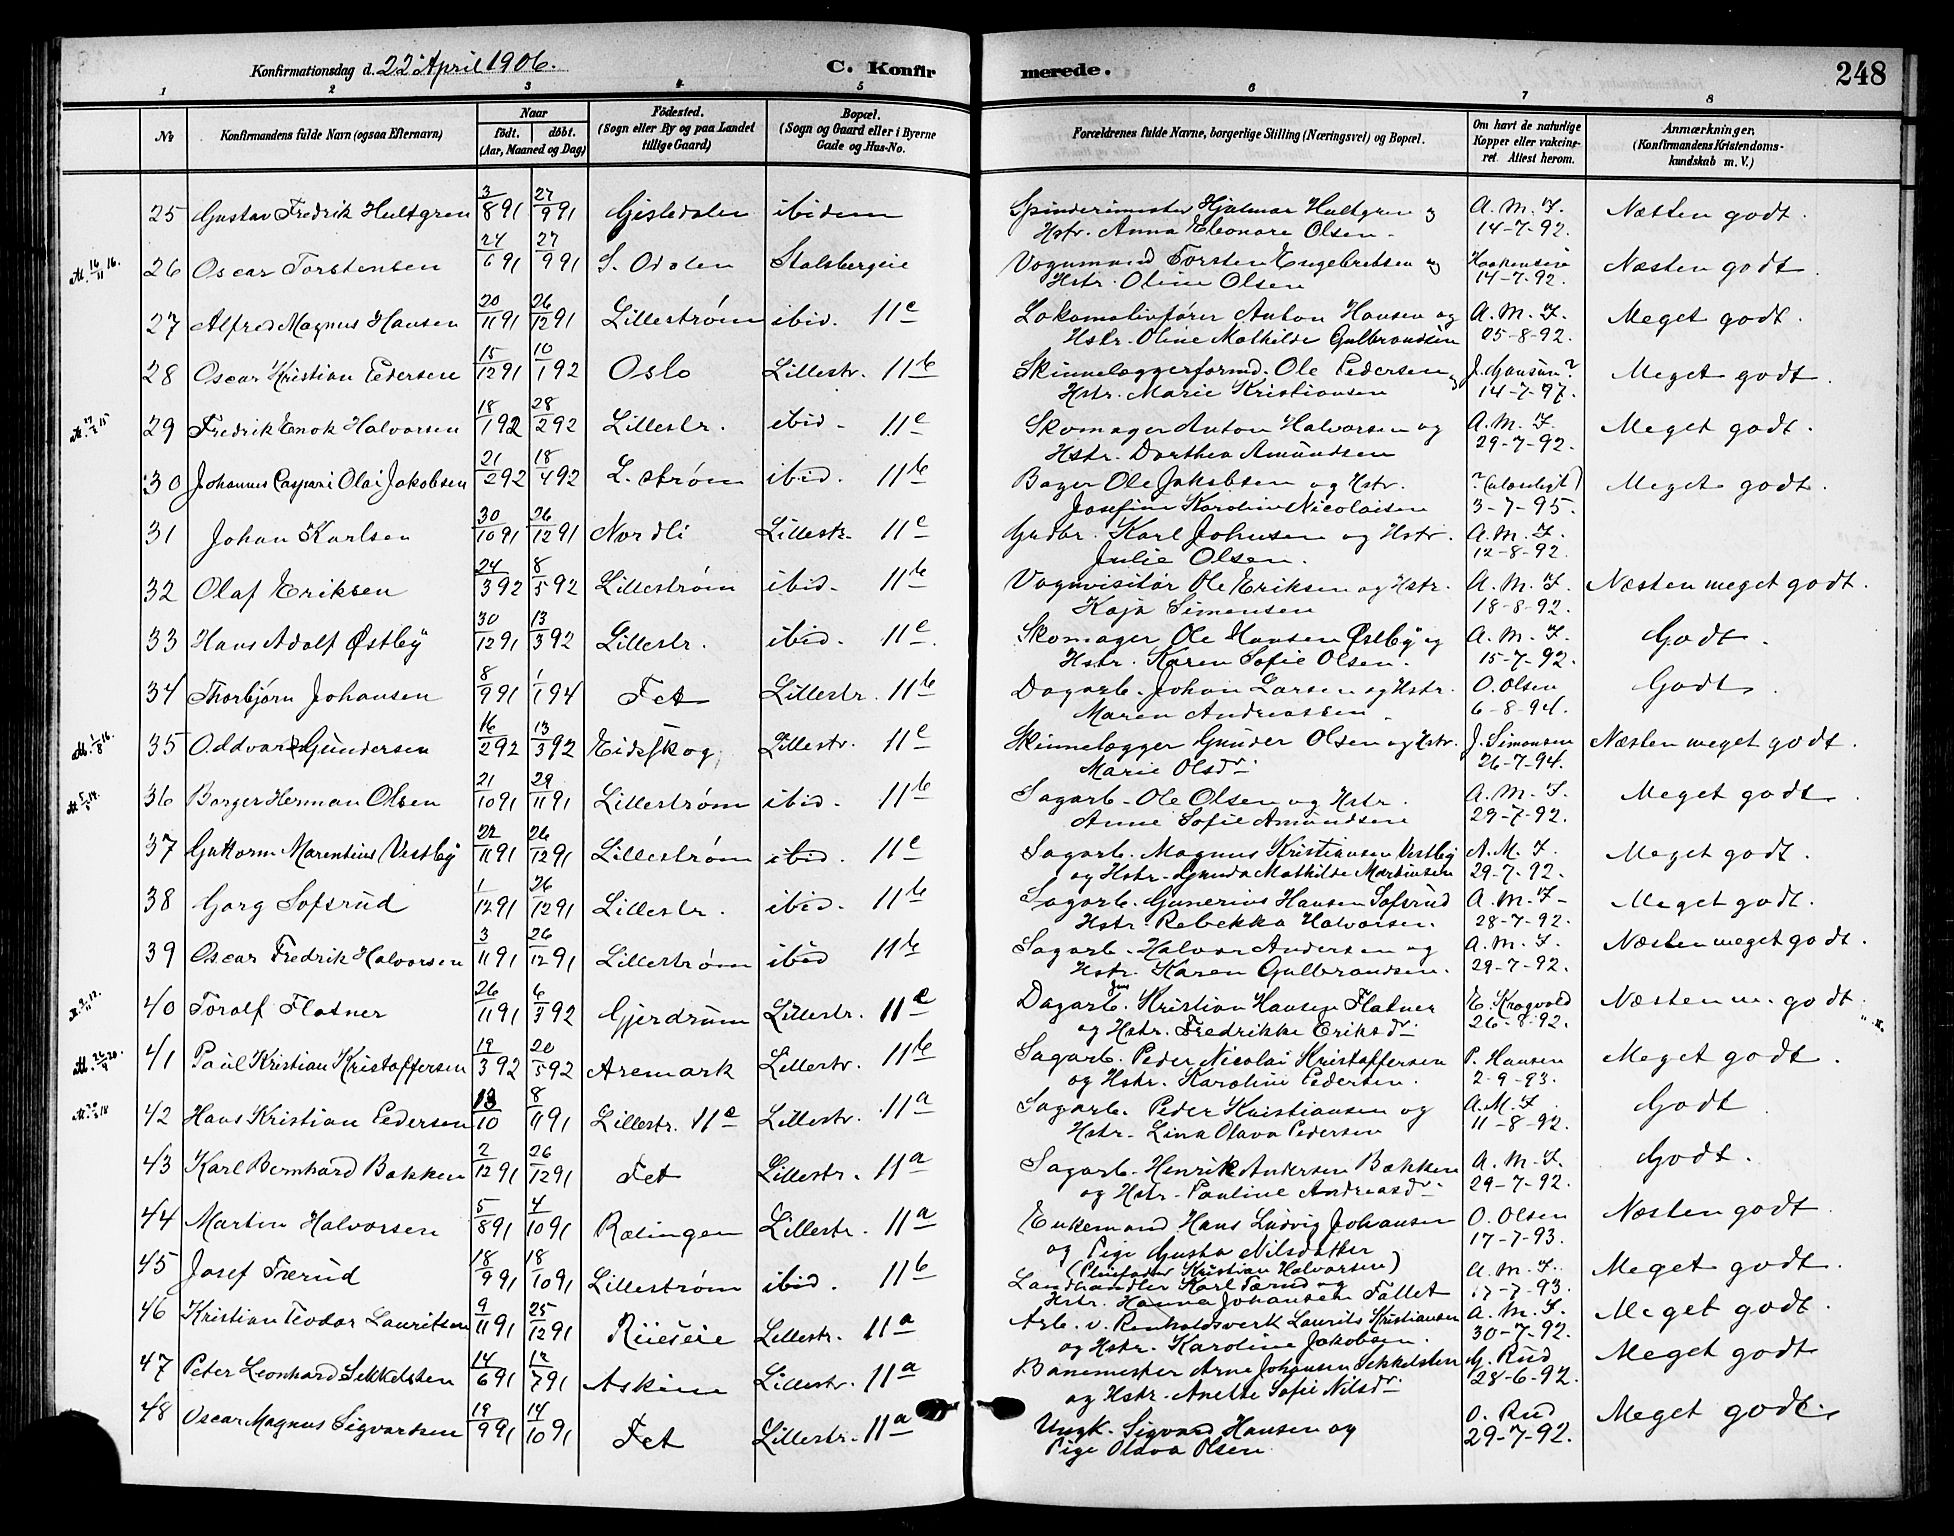 Konfirmationsdag d. 22 April 1906. C. Konfir merede. 248
1 2 3 4 5 6 7 8
No Konfirmandens fulde Navn (ogsaa Efternavn) Naar født. døbt. (Aar, Maaned og Dag) Fødested. (Sogn eller By og paa Landet tillige Gaard) Bopæl. (Sogn og Gaard eller i Byerne Gade og Hus-No. Forældrenes fulde Navne, borgerlige Stilling (Næringsvei) og Bopæl. Om havt de naturlige Kopper eller vakcineret. Attest herom. Anmærkninger. (Konfirmandens Kristendomskundskab m. V.)
25 Gustav Fredrik Hultgren 3/8 91 27/9 91 Gjeledalen ibidem Spinderimester Hjalmar Hultgren og A. M. F. Næsten godt.
Hstr. Anna Eleonore Olsen. 14-7-92.
26 Oscar Torstensen 24/6 91 27/9 91 S. Odalen Stalsbergeie Vognmand Torsten Engebretsen og Haakensen Næsten godt.
Hstr. Oline Olsen 14-7-92.
27 Alfred Magnus Hansen 20/11 91 26/12 91 Lillestrøm ibid. 11c Lokomotivfører Anton Hansen og A. M. F. Meget godt.
Hstr. Oline Mathilde Gulbrandsen 25-8-92.
28 Oscar Kristian Pedersen 15/12 91 10/1 92 Oslo Lillestr. 11b Skinnelæggerformd. Ole Pedersen og J. Hansen? Meget godt.
Hstr. Marie Kristiansen 14-7-97.
29 Fredrik Enok Halvorsen 18/1 92 28/2 92 Lillestr. ibid. 11c Skomager Anton Halvorsen og A. M. F. Meget godt.
Hstr. Dorthea Amundsen 29-7-92.
30 Johannes Caspari Olai Jakobsen 21/2 92 18/4 92 L.strøm ibid. 11b Bager Ole Jakobsen og Hstr. ? (ulæseligt) Meget godt.
Josefine Karoline Nicolaisen 3-7-95.
31 Johan Karlsen 30/10 91 26/12 91 Nordli Lillestr. 11c Gudbr. Karl Johnsen og Hstr. A. M. F.
Julie Olsen. 12-8-92.
32 Olaf Eriksen 24/3 92 8/5 92 Lillestrøm ibid. 11b Vognvisitør Ole Eriksen og Hstr. A. M. F. Næsten meget godt.
Kaja Simensen 18-8-92.
33 Hans Adolf Østby 30/12 91 13/3 92 Lillestr. ibid. 11c. Skomager Ole Hansen Østby og A. M. F. Godt.
Hstr. Karen Sofie Olsen. 15-7-92.
34 Thorbjørn Johansen 8/9 91 1/1 94 Fet Lillestr. 11b Dagarb. Johan Larsen og Hstr. O. Olsen Godt.
Maren Andreassen. 6-8-94.
35 Oddvar Gundersen 16/2 92 13/3 92 Eidsskog Lillestr. 11c Skinnelægger Gunder Olsen og Hstr. J. Simonsen Næsten meget godt.
Marie Olsdr. 26-7-94.
36 Borger Herman Olsen 21/10 91 29/11 91 Lillestrøm ibid. 11b Sagarb. Ole Olsen og Hstr. A. M. F. Meget godt.
Anne Sofie Amundsen 29-7-92.
37 Guttorm Marentius Vestby 22/11 91 26/12 91 Lillestrøm ibid. 11c Sagarb. Magnus Kristiansen Vestby A. M. F. Meget godt.
og Hstr. Gunda Mathilde Martinsen 29-7-92.
38 Georg Sofsrud 1/12 91 26/12 91 Lillestr. ibid. 11b Sagarb. Gunerius Hansen Sofsrud A. M. F. Meget godt.
Hstr. Rebekka Halvorsen. 28-7-92.
39 Oscar Fredrik Halvorsen 3/11 91 26/12 91 Lillestrøm ibid 11b Sagarb. Halvor Andersen og A. M. F. Næsten meget godt.
Hstr. Karen Gulbrandsen. 29-7-92.
40 Toralf Flatner 26/11 91 6/3 92 Gjerdrum Lillestr. 11c Dagarb. Kristian Hansen Flatner E. Kragvold Næsten m. godt.
og Hstr. Fredrikke Eriksdr. 26-8-92.
41 Paul Kristian Kristoffersen 19/3 92 20/5 92 Aremark Lillestr. 11b Sagarb. Peder Nicolai Kristoffersen P. Hansen Meget godt.
og Hstr. Karoline Pedersen. 2-9-93.
42 Hans Kristian Pedersen 13/10 8/11 91 Lillestr. 11c Lillestr. 11a Sagarb. Peder Kristiansen og A. M. F. Godt.
Hstr. Lina Olava Pedersen 11-8-92.
43 Karl Bernhard Bakken 2/12 91 26/12 91 Fet Lillestr. 11a Sagarb. Henrik Andersen Bakken A. M. F. Godt.
og Hstr. Pauline Andreasdr. 29-7-92.
44 Martin Halvorsen 5/8 91 4/10 91 Rælingen Lillestr. 11a Enkemand Hans Ludvig Johansen O. Olsen Næsten godt.
og Pige Gusta Nilsdatter 17-7-93.
(Pleiefader Kristian Halvorsen)
45 Josef Færud 18/9 91 18/10 91 Lillestrøm ibid. 11b Landhandler Karl Færud og A. M. F. Meget godt.
Hstr. Hanna Johansen Fallet 17-7-93.
46 Kristian Teodor Lauritsen 9/11 91 25/12 91 Riiseie Lillestr. 11a Arb. v. Renholdsverk Laurits Kristiansen A. M. F. Meget godt.
og Hstr. Karoline Jakobsen. 30-7-92.
47 Peter Leonhard Sekkelsten 14/6 91 12/7 91 Askim Lillestr. 11a Banemester Arne Johansen Sekkelsten G. Rud Meget godt
og Hstr. Anette Sofie Nilsdr. 28-6-92.
48 Oscar Magnus Sigvartsen 19/9 91 14/10 91 Fet Lillestr. 11a Ungk. Sigvard Hansen og O. Rud Meget godt.
Pige Olava Olsen 29-7-92.